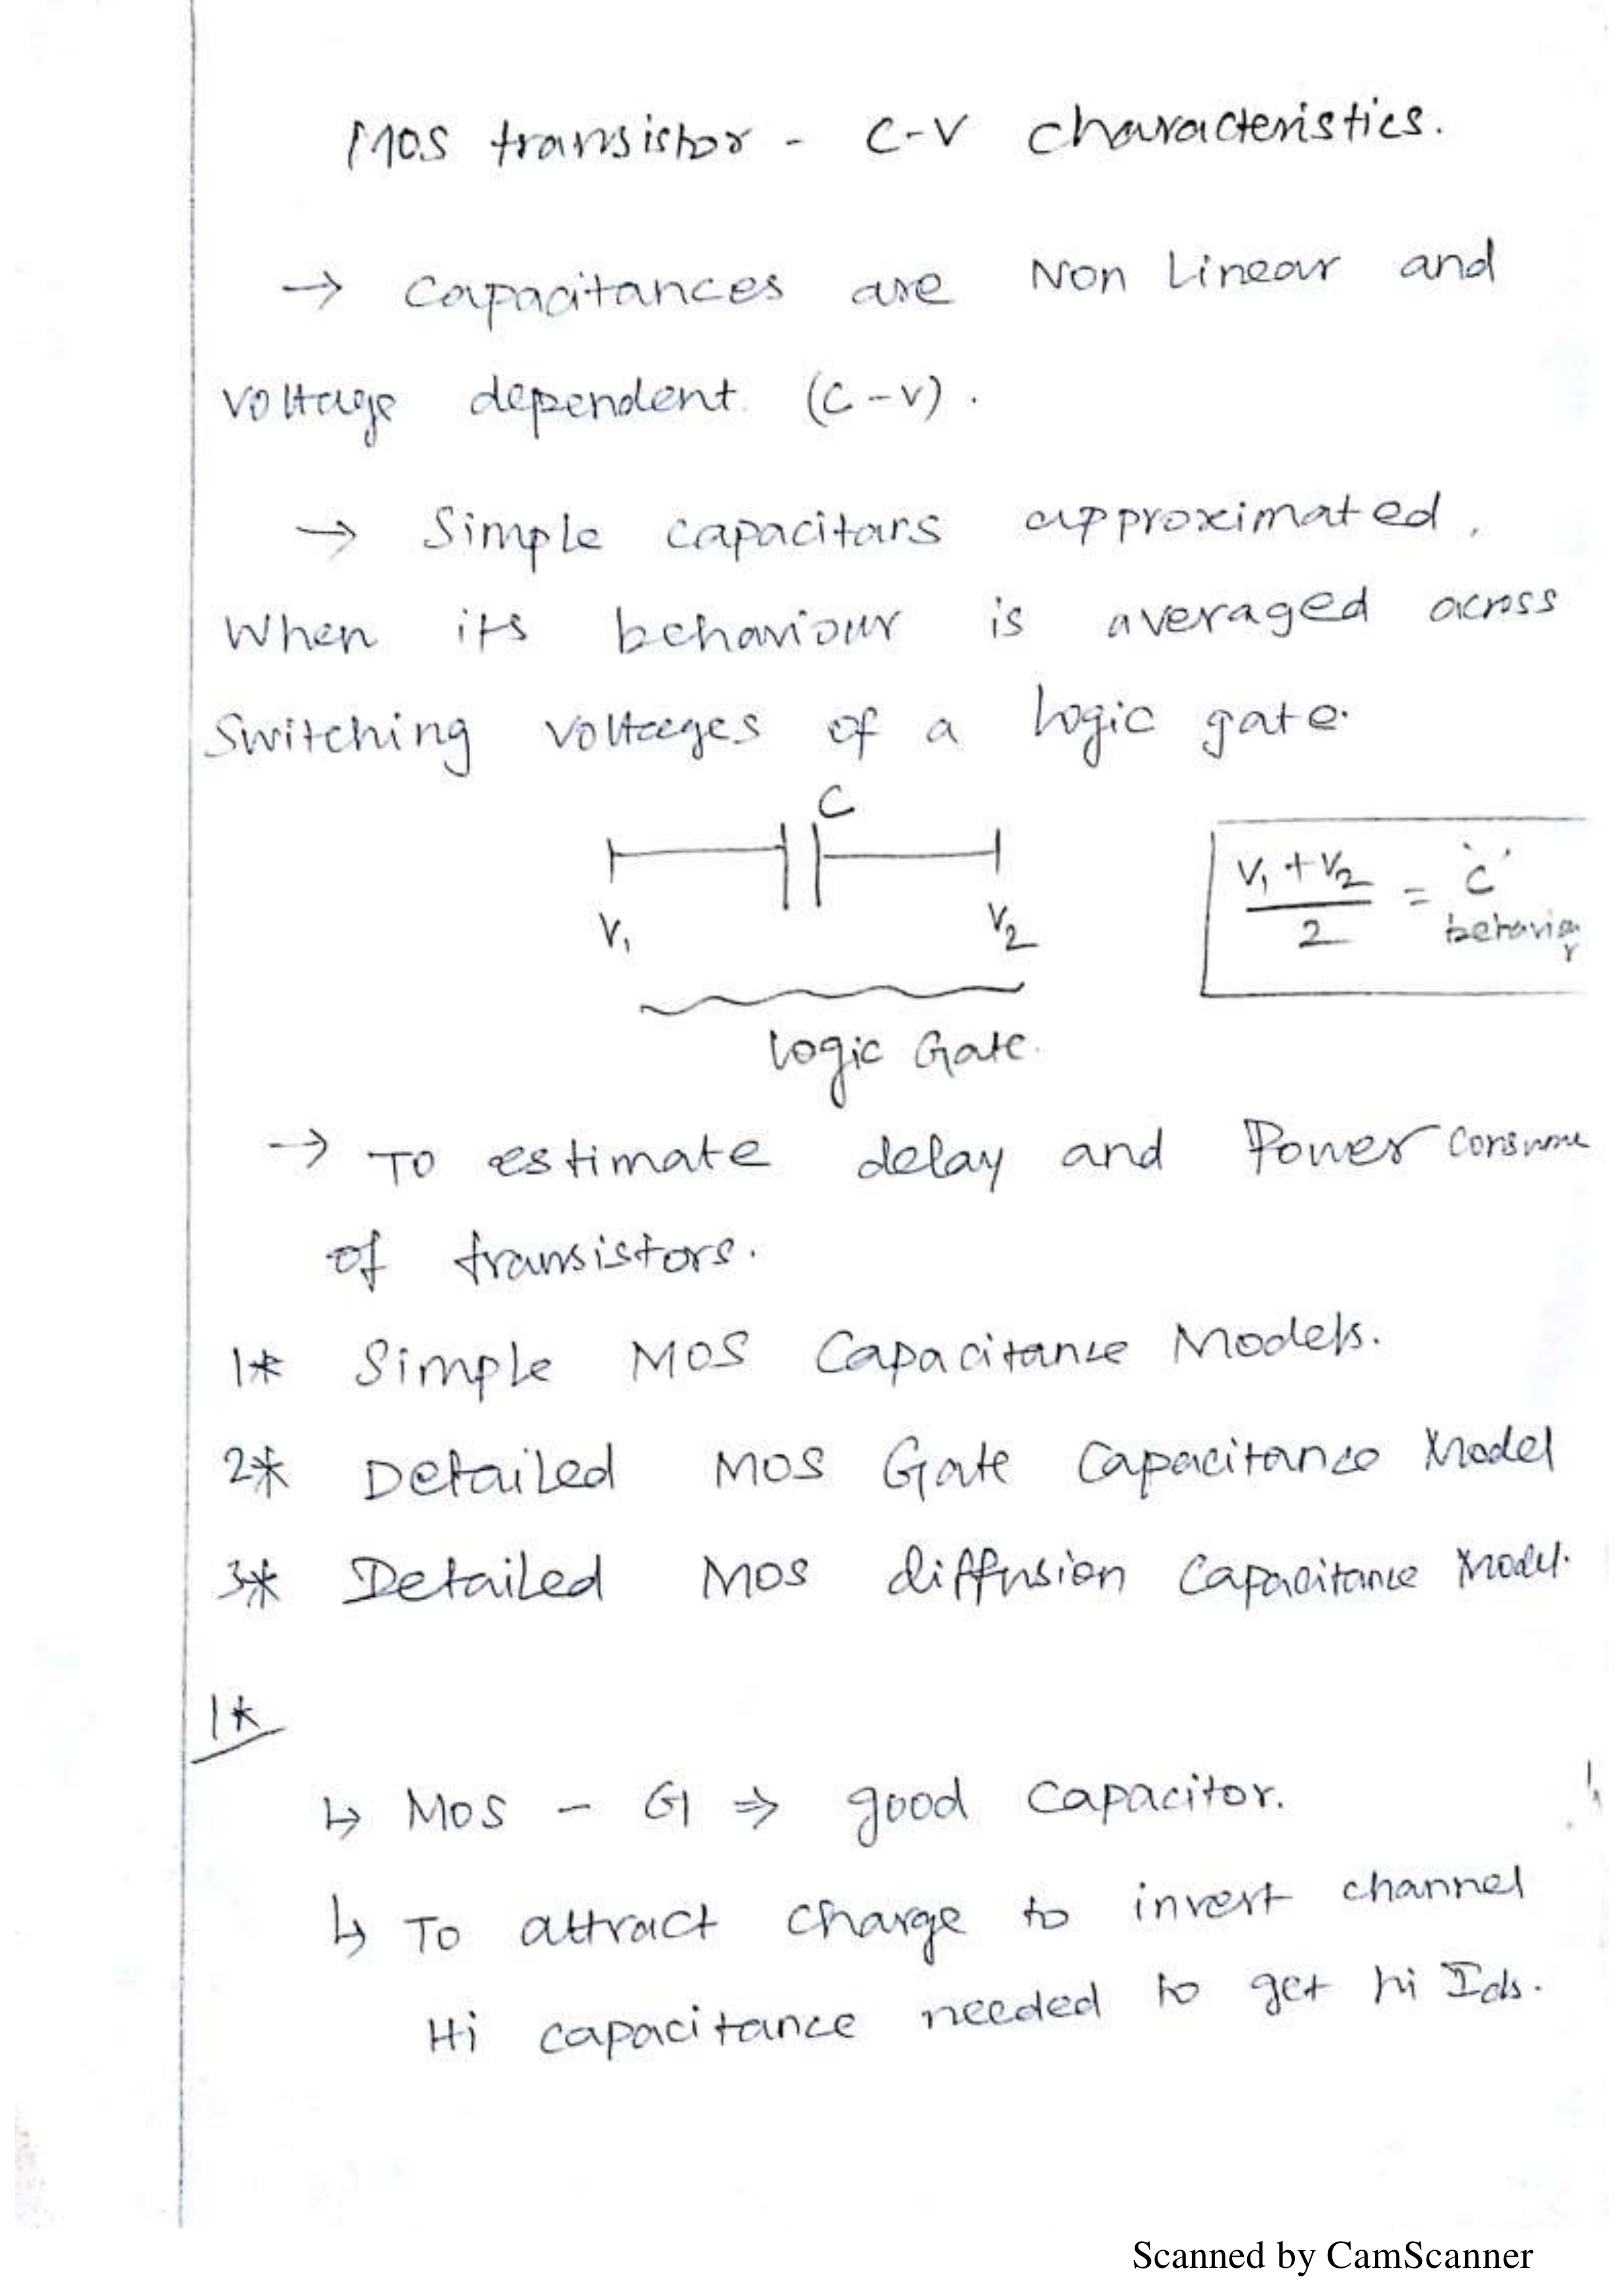 MOS transistor - C-V characteristics.
→ Capacitances are Non Linear and
voltage dependent (C-V).
→ Simple capacitars approximated,
When its behaviour is averaged across
Switching voltages of a logic gate.
C
V1 V2
(V1 + V2)/2 = 'C'
behavior
Logic Gate.
→ To estimate delay and Power consume
of transistors.
1* Simple MOS Capacitance Models.
2* Detailed MOS Gate Capacitance Model
3* Detailed MOS diffusion Capacitance Model.
1*
↳ MOS - G ⇒ good capacitor.
↳ To attract charge to invert channel
Hi capacitance needed to get hi Ids.
Scanned by CamScanner